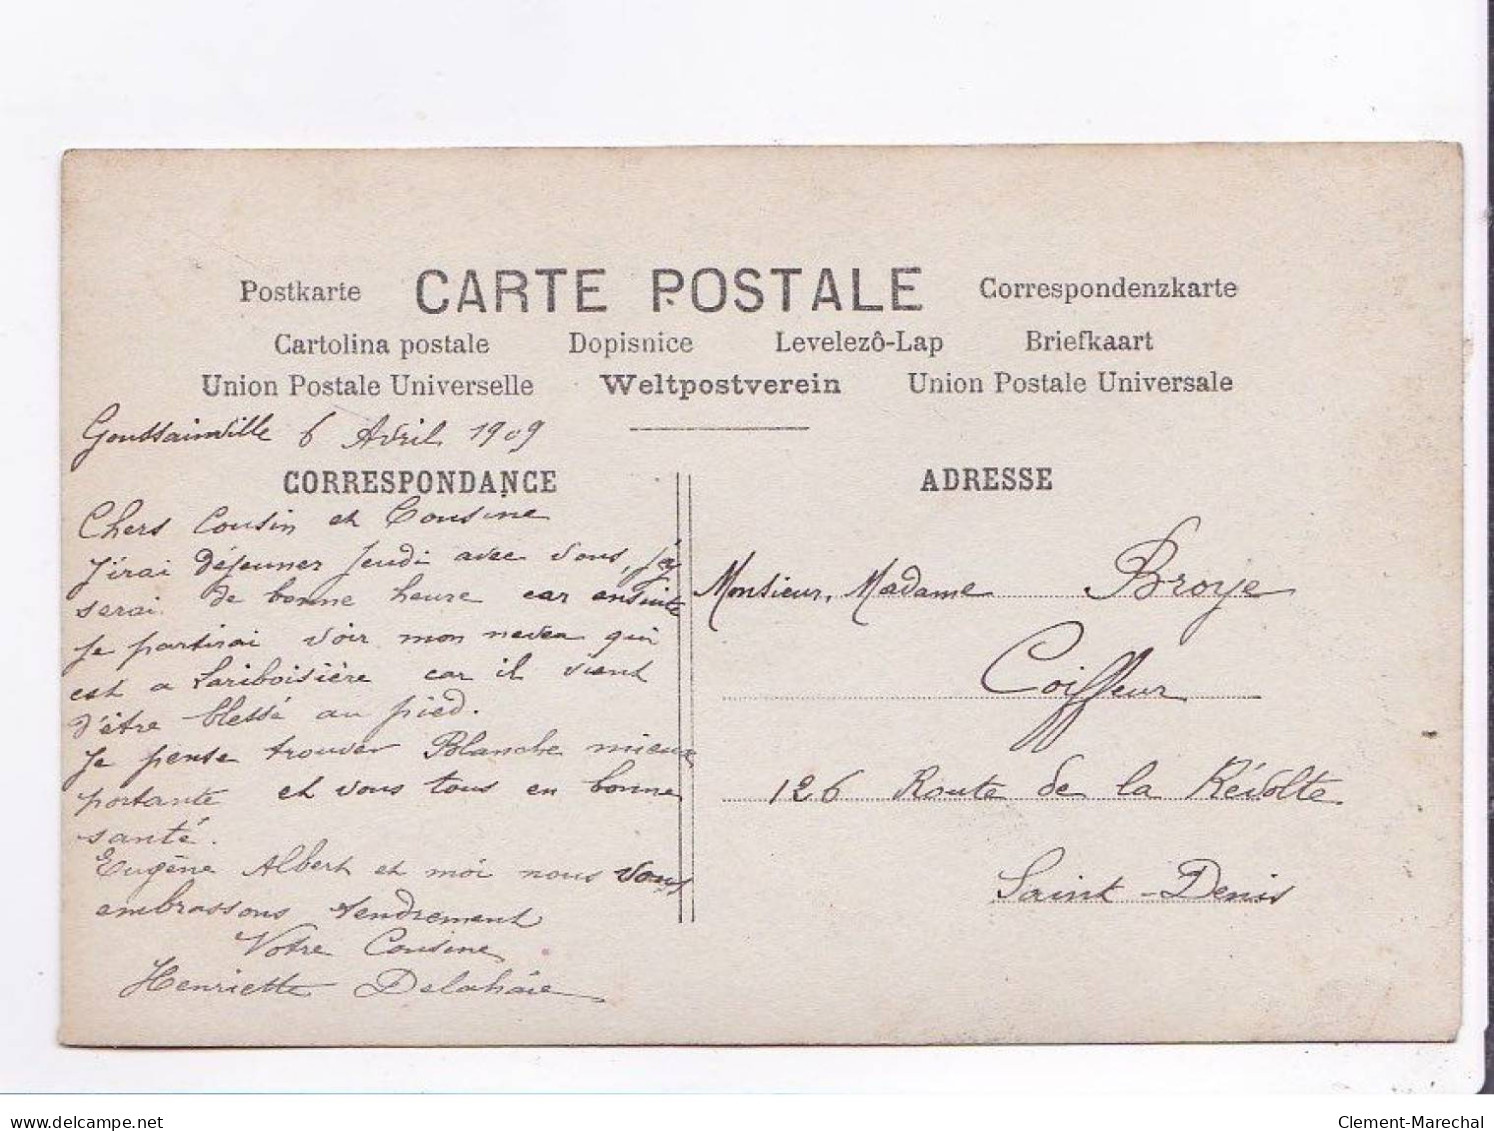 Postkarte CARTE POSTALE Correspondenzkarte
Cartolina postale Dopisnice Levelezô-Lap Briefkaart
Union Postale Universelle Weltpostverein Union Postale Universale
Goussainville 6 Avril 1909
CORRESPONDANCE
Chers Cousin et Cousine
J'irai déjeuner Jeudi avec vous, j'y
serai de bonne heure car ensuite
je partirai voir mon neveu qui
est a Lariboisière car il vient
d'être blessé au pied.
Je pense trouver Blanche mieux
portante et vous tous en bonne
santé.
Eugène Albert et moi nous vous
embrassons tendrement
Votre Cousine
Henriette Delahaie
ADRESSE
Monsieur, Madame Broye
Coiffeur
126 Route de la Révolte
Saint-Denis
delcampe.net
Clement-Marechal